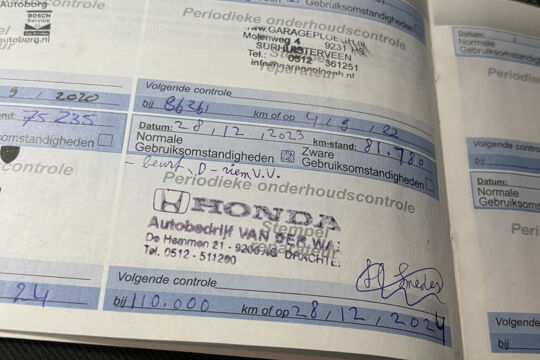 Autoborg
BOSCH
Service
autoborg.nl
Periodieke onderhoudscontrole
www.GARAGEPLOEGH.NL
Molenweg 4 9231 HS
SURHUISTERVEEN
Tel.: 0512 - 361251
Stempel
reparateur
Volgende controle
bij 86261 km of op 4, 9, 22
9, 2020
75235
Datum: 28, 12, 2023 km-stand: 81.780
Normale Gebruiksomstandigheden
Zware Gebruiksomstandigheden
- beurt, D-riem v.v.
Periodieke onderhoudscontrole
HONDA
Autobedrijf VAN DER WA
De Haammen 21 - 9206 AG - DRACHTE
Tel. 0512 - 511200
Stempel
reparateur
Smedes
Volgende controle
bij 110.000 km of op 28, 12, 2024
24
Datum:
Normale
Gebruiksomstandigheden
Perio
Volgende controle
bij
Datum:
Normale
Gebruiksomstandig
Peri
Volgende
bij